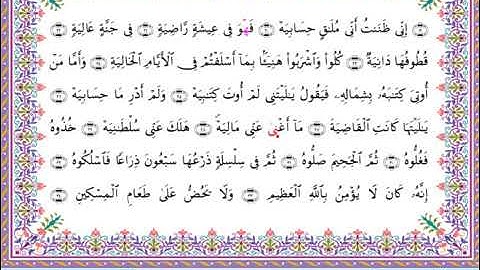 إِنِّى ظَنَنتُ أَنِّى مُلَـٰقٍ حِسَابِيَهْ فَهُوَ فِى عِيشَةٍ رَّاضِيَةٍ فِى جَنَّةٍ عَالِيَةٍ
قُطُوفُهَا دَانِيَةٌ كُلُوا۟ وَٱشْرَبُوا۟ هَنِيٓـًٔۢا بِمَآ أَسْلَفْتُمْ فِى ٱلْأَيَّامِ ٱلْخَالِيَةِ وَأَمَّا مَنْ
أُوتِىَ كِتَـٰبَهُۥ بِشِمَالِهِۦ فَيَقُولُ يَـٰلَيْتَنِى لَمْ أُوتَ كِتَـٰبِيَهْ وَلَمْ أَدْرِ مَا حِسَابِيَهْ
يَـٰلَيْتَهَا كَانَتِ ٱلْقَاضِيَةَ مَآ أَغْنَىٰ عَنِّى مَالِيَهْ ۜ هَلَكَ عَنِّى سُلْطَـٰنِيَهْ خُذُوهُ
فَغُلُّوهُ ثُمَّ ٱلْجَحِيمَ صَلُّوهُ ثُمَّ فِى سِلْسِلَةٍ ذَرْعُهَا سَبْعُونَ ذِرَاعًا فَٱسْلُكُوهُ
إِنَّهُۥ كَانَ لَا يُؤْمِنُ بِٱللَّهِ ٱلْعَظِيمِ وَلَا يَحُضُّ عَلَىٰ طَعَامِ ٱلْمِسْكِينِ